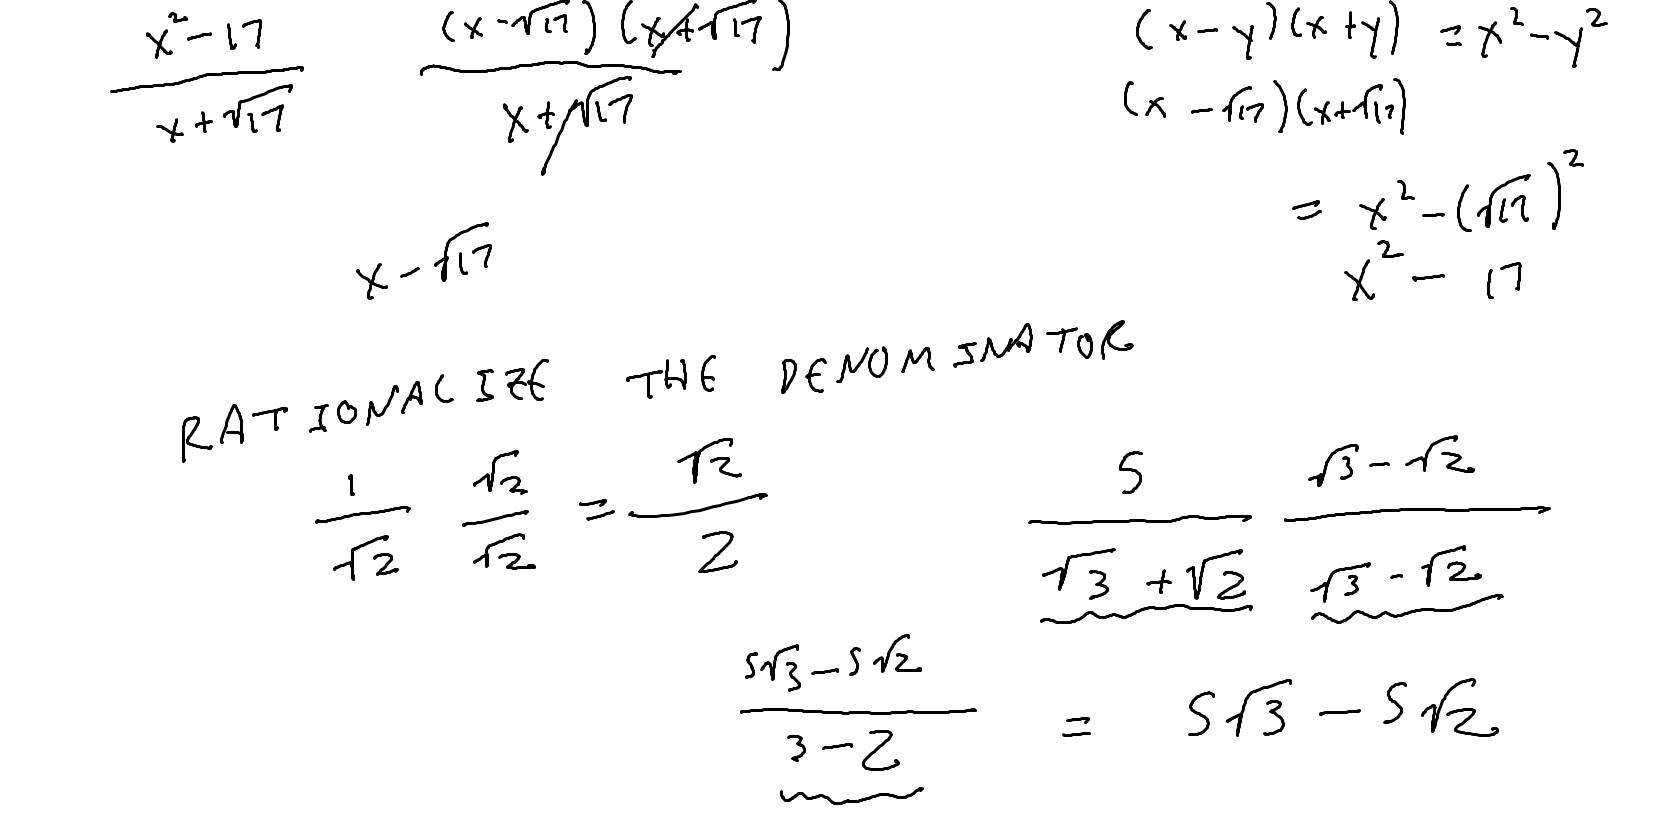 x²-17 / x+√17    (x-√17)(x+√17) / x+√17
x-√17
(x-y)(x+y) = x²-y²
(x-√17)(x+√17)
= x²-(√17)²
x²- 17
RATIONALIZE THE DENOMINATOR
1/√2 √2/√2 = √2/2
5/(√3+√2) (√3-√2)/(√3-√2)
(5√3-5√2)/(3-2) = 5√3-5√2